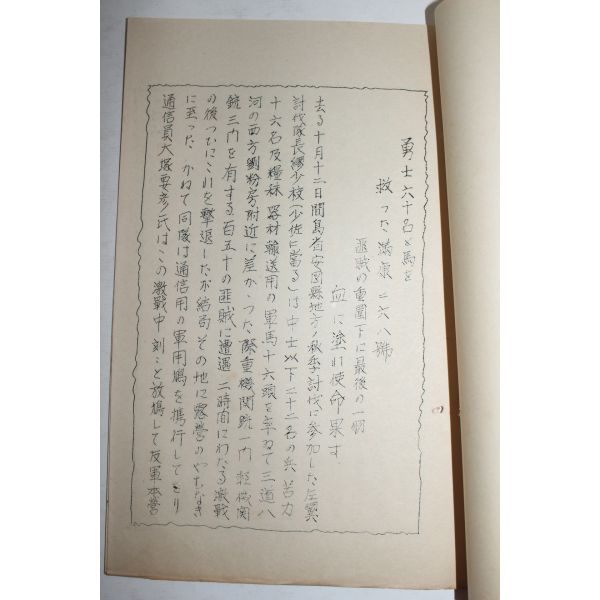 勇士六十名と馬を
救った満東二六八號
匪賊の重圍下に最後の一羽
血に塗れ使命果す
去る十月十二日間島省安図縣地方ノ秋季討伐に参加した左翼
討伐隊長繆少校(少佐に當る)は中士以下二十二名の兵 苦力
十六名及糧秣 器材輸送用の軍馬十六頭を率ゐて三道八
河の西方劉粉房附近に差かゝつた際重機関銃一門 軽機関
銃三門を有する百五十の匪賊に遭遇 二時間にわたる激戦
の後つひにこれを撃退したが結局その地に露營のやむなき
に至った かねて同隊は通信用の軍用鳩を携行してをり
通信員大塚要彦氏はこの激戦中刻こと放鳩して友軍本營